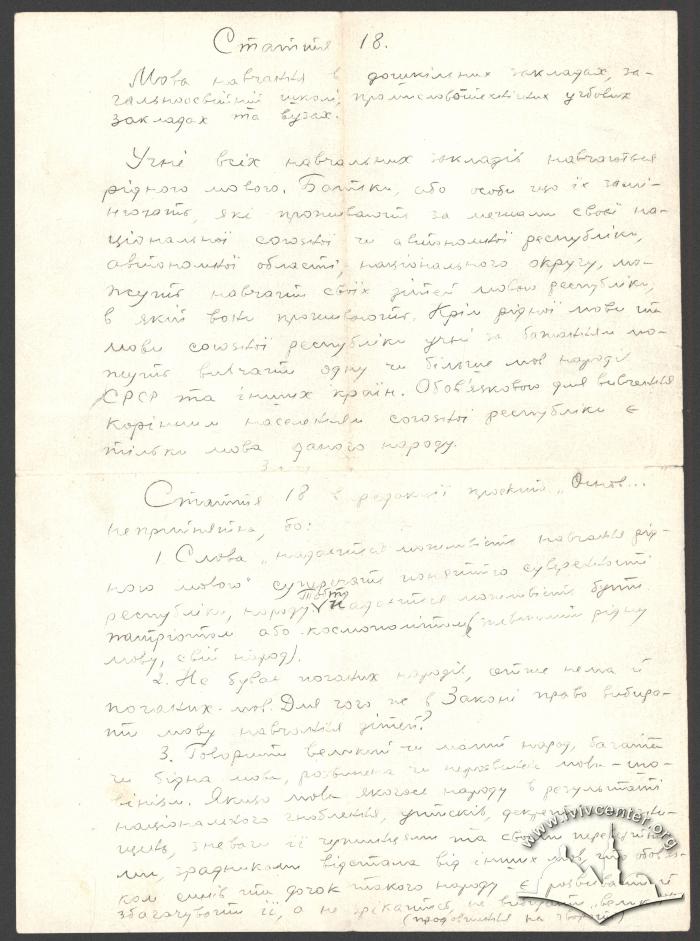 Стаття 18.
Мова навчання в дошкільних закладах, за-
гальноосвітній школі, промисловотехнічних учбових
закладах та вузах.
Учні всіх навчальних закладів навчаються
рідною мовою. Батьки, або особи що їх замі-
нюють, які проживають за межами своєї на-
ціональної союзної чи автономної республіки,
автономної області, національного округу, мо-
жуть навчати своїх дітей мовою республіки,
в якій вони проживають. Крім рідної мови та
мови союзної республіки учні за бажанням мо-
жуть вивчати одну чи більше мов народів
СРСР та інших країн. Обов'язковою для вивчення
корінним населенням союзної республіки є
тільки мова даного народу.
Стаття 18 в редакції проекту „Основ...
неприйнятна, бо:
1 Слова „надається можливість навчання рід-
ною мовою" суперечать поняттю суверенності
республіки, народу. Тобто надається можливість бути
патріотом або космополітом рідну
мову, свій народ).
2. Не буває поганих народів, отже нема й
поганих мов. Для чого ж в Законі право вибира-
ти мову навчання дітей?
3. Говорити великий чи малий народ, багата
чи бідна мова, розвинена чи нерозвинена мова - шо-
вінізм. Якщо мова якогось народу в результаті
національного гноблення, утисків,
зневаги її чужинцями та своїми
ми, зрадниками відстала від інших мов, то обов'яз-
ком синів та дочок такого народу є розвивати й
збагачувати її, а не зрікатися, не вивчати „велик
(продовження на звороті)
www.lvivcenter.org